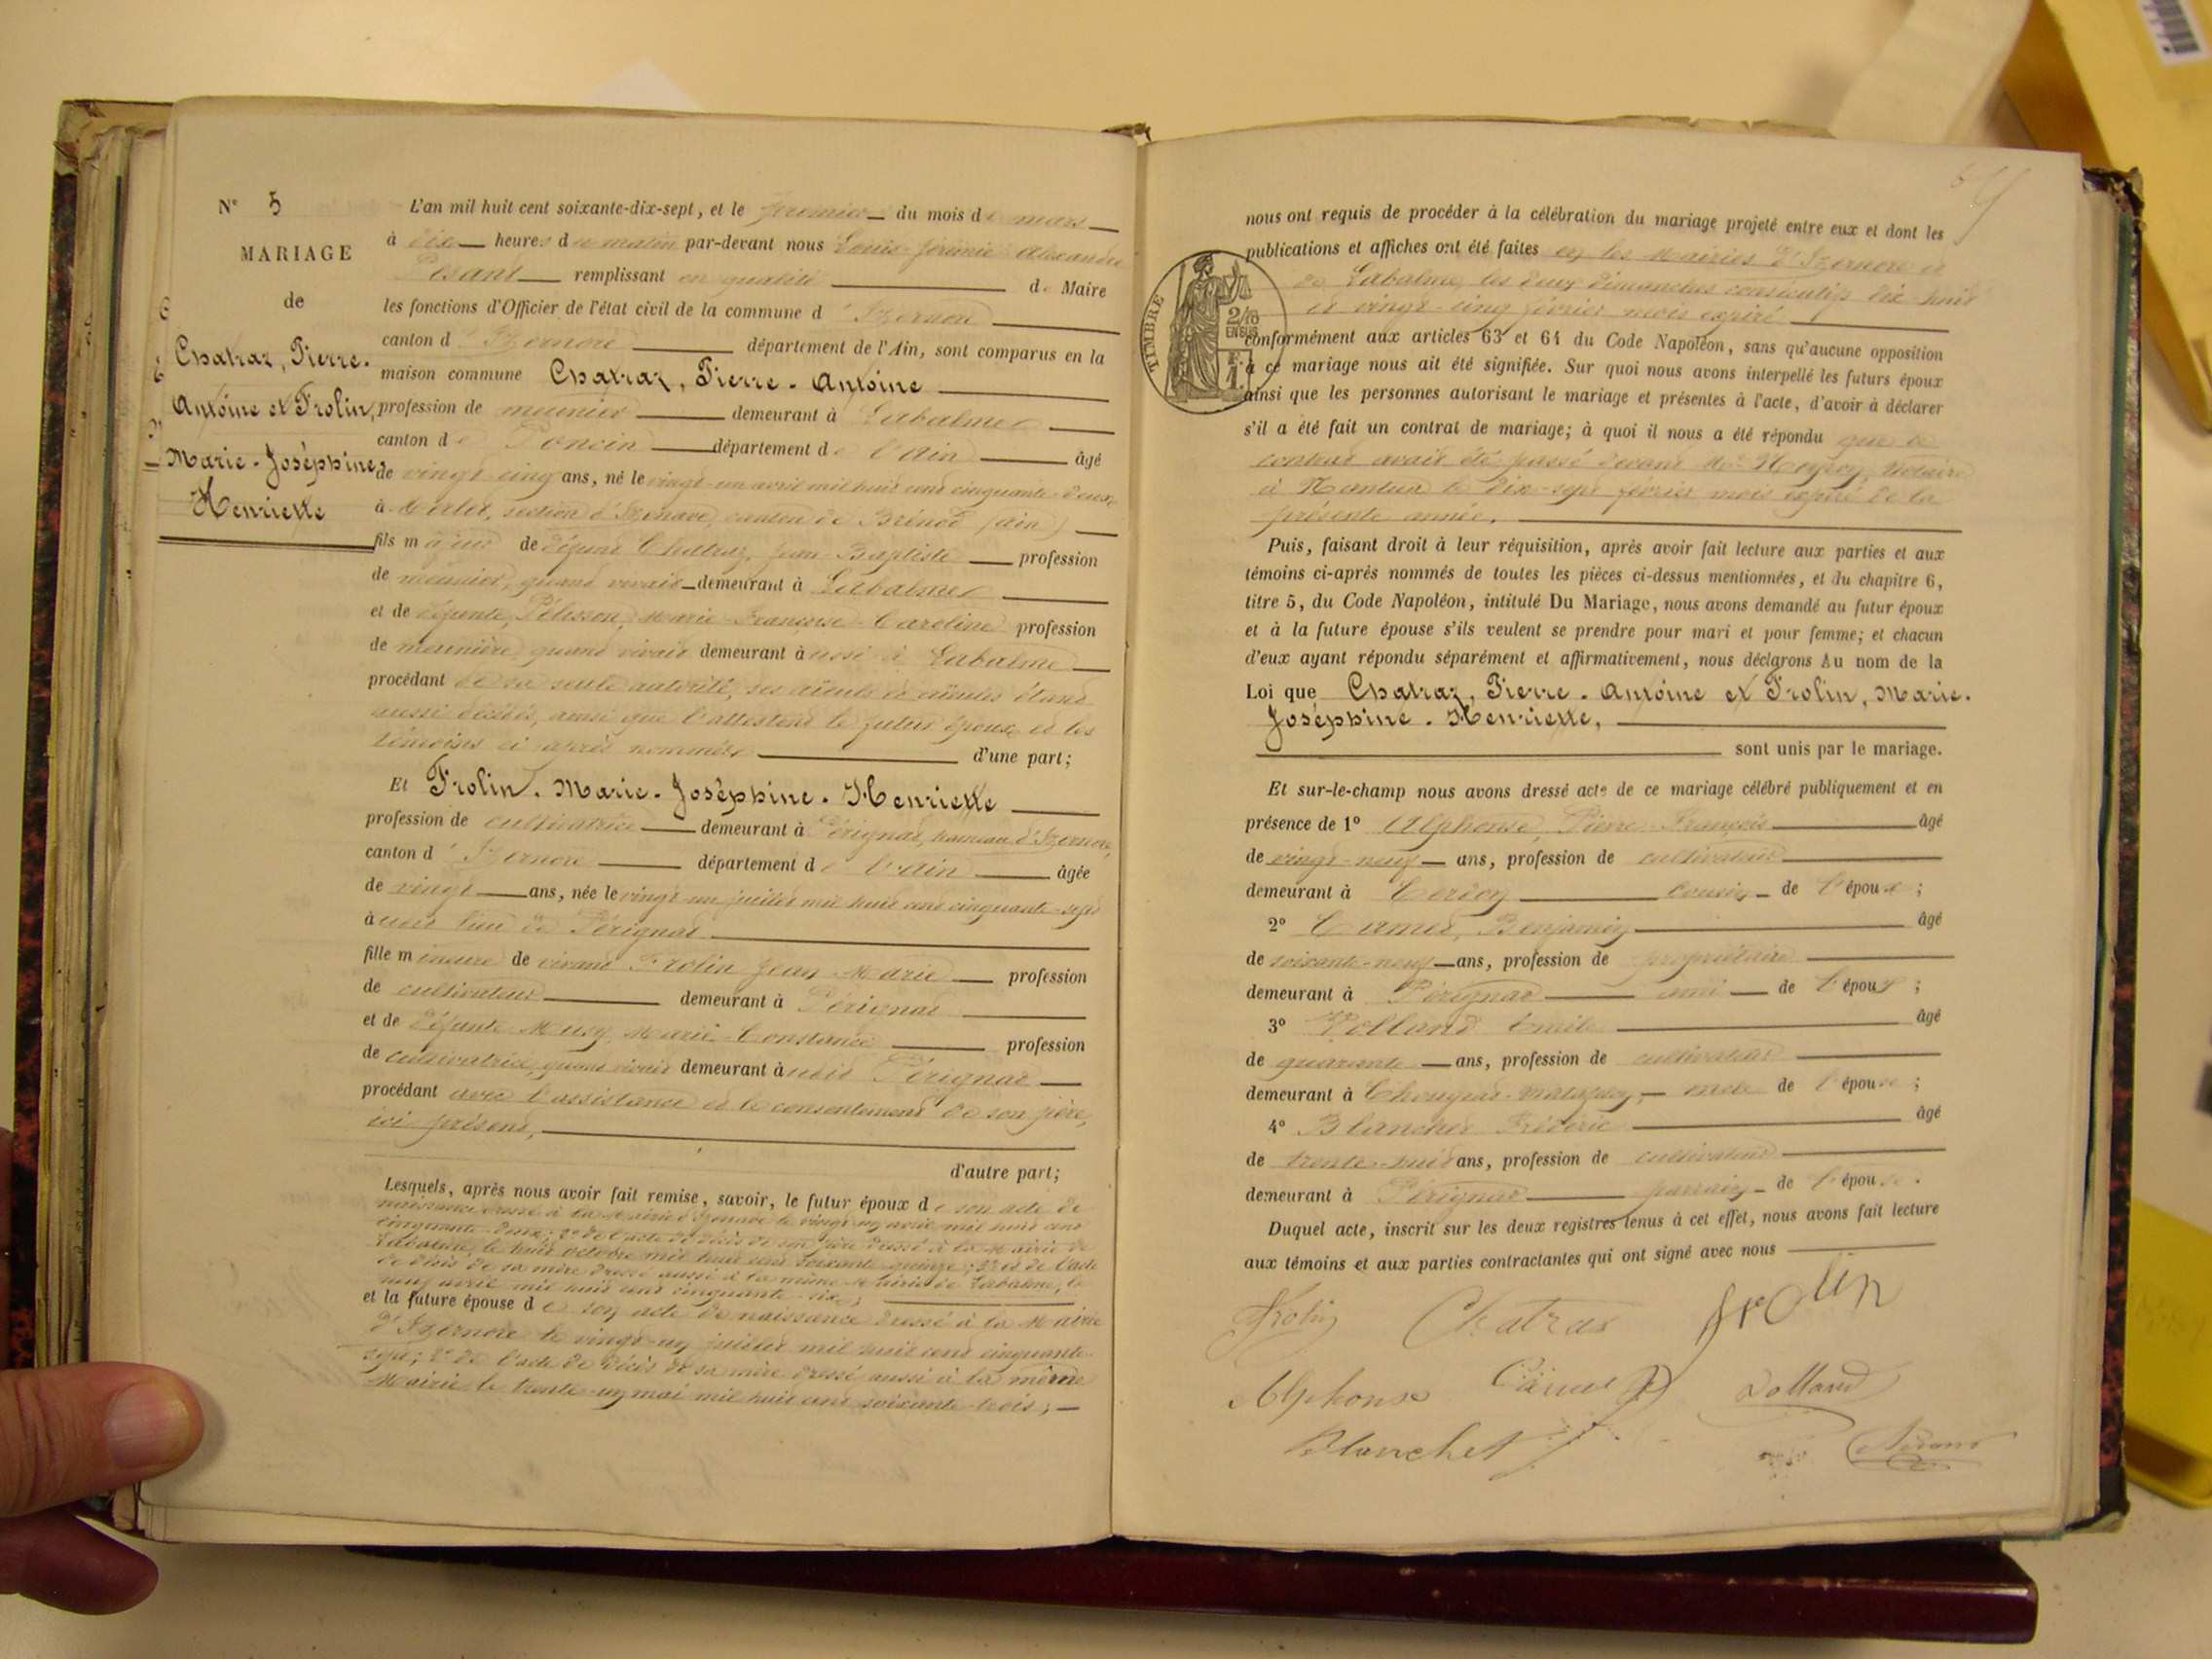 N° 5
MARIAGE
de
Chatraz, Pierre-
Antoine et Frolin,
Marie-Joséphine-
Henriette
L'an mil huit cent soixante-dix-sept, et le premier du mois de mars
à dix heures du matin par-devant nous Louis-Jérémie Alexandre
remplissant en qualité de Maire
les fonctions d'Officier de l'état civil de la commune d'Izernore
canton d'Izernore département de l'Ain, sont comparus en la
maison commune Chatraz, Pierre-Antoine
profession de meunier demeurant à Labalme
canton de Poncin département de l'Ain âgé
de vingt-cinq ans, né le vingt-un avril mil huit cent cinquante-deux
à section d'Izenave, canton de Brénod (Ain)
fils majeur de défunt Chatraz, Jean-Baptiste profession
de meunier, quand vivait demeurant à Labalme
et de défunte Pélisson, Marie-Françoise-Caroline profession
de meunière, quand vivait demeurant aussi à Labalme
procédant de sa seule autorité, ses aïeuls et aïeules étant
aussi décédés, ainsi que l'attestent le futur époux et les
témoins ci-après nommés d'une part;
Et Frolin, Marie-Joséphine-Henriette
profession de cultivatrice demeurant à Pérignat, hameau d'Izernore,
canton d'Izernore département de l'Ain âgée
de vingt ans, née le vingt-un juillet mil huit cent cinquante-sept
à lieu de Pérignat
fille mineure de vivant Frolin Jean-Marie profession
de cultivateur demeurant à Pérignat
et de défunte Musy, Marie-Constance profession
de cultivatrice, quand vivait demeurant à Pérignat
procédant avec l'assistance et le consentement de son père,
ici présent,
d'autre part;
Lesquels, après nous avoir fait remise, savoir, le futur époux de son acte de
naissance dressé à la Mairie d'Izenave le vingt-un avril mil huit cent
cinquante-deux; 2° de l'acte de décès de son père dressé à la Mairie de
Labalme, le huit octobre mil huit cent soixante-quinze; 3° et de l'acte
de décès de sa mère dressé aussi à la même Mairie de Labalme, le
avril mil huit cent cinquante-six;
et la future épouse de son acte de naissance dressé à la Mairie
d'Izernore le vingt-un juillet mil huit cent cinquante-
sept; 2° de l'acte de décès de sa mère dressé aussi à la même
Mairie le trente-un mai mil huit cent soixante-trois;
nous ont requis de procéder à la célébration du mariage projeté entre eux et dont les
publications et affiches ont été faites en les Mairies d'Izernore et
de Labalme, les deux dimanches consécutifs dix-huit
et vingt-cinq février mois expiré
conformément aux articles 63 et 64 du Code Napoléon, sans qu'aucune opposition
à ce mariage nous ait été signifiée. Sur quoi nous avons interpellé les futurs époux
ainsi que les personnes autorisant le mariage et présentes à l'acte, d'avoir à déclarer
s'il a été fait un contrat de mariage; à quoi il nous a été répondu que ce
contrat avait été passé devant Me notaire
à Nantua le dix-sept février mois expiré de la
présente année.
TIMBRE
2/10
EN SUS
Puis, faisant droit à leur réquisition, après avoir fait lecture aux parties et aux
témoins ci-après nommés de toutes les pièces ci-dessus mentionnées, et du chapitre 6,
titre 5, du Code Napoléon, intitulé Du Mariage, nous avons demandé au futur époux
et à la future épouse s'ils veulent se prendre pour mari et pour femme; et chacun
d'eux ayant répondu séparément et affirmativement, nous déclarons Au nom de la
Loi que Chatraz, Pierre-Antoine et Frolin, Marie-
Joséphine-Henriette,
sont unis par le mariage.
Et sur-le-champ nous avons dressé acte de ce mariage célébré publiquement et en
présence de 1° Alphonse, Pierre-François âgé
de vingt-neuf ans, profession de cultivateur
demeurant à Cerdon cousin de l'époux;
2° Carmet, Benjamin âgé
de soixante-neuf ans, profession de propriétaire
demeurant à Pérignat ami de l'époux;
3° Volland Emile âgé
de quarante ans, profession de cultivateur
demeurant à oncle de l'épouse;
4° Blanchet Frédéric âgé
de trente-huit ans, profession de cultivateur
demeurant à Pérignat parrain de l'épouse.
Duquel acte, inscrit sur les deux registres tenus à cet effet, nous avons fait lecture
aux témoins et aux parties contractantes qui ont signé avec nous
Frolin Chatraz frolin
Alphonse Volland
Blanchet